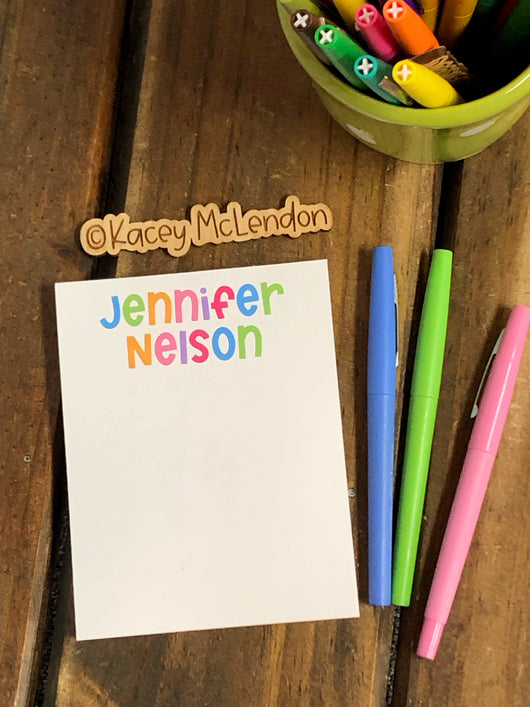 ©Kacey McLendon
Jennifer
Nelson